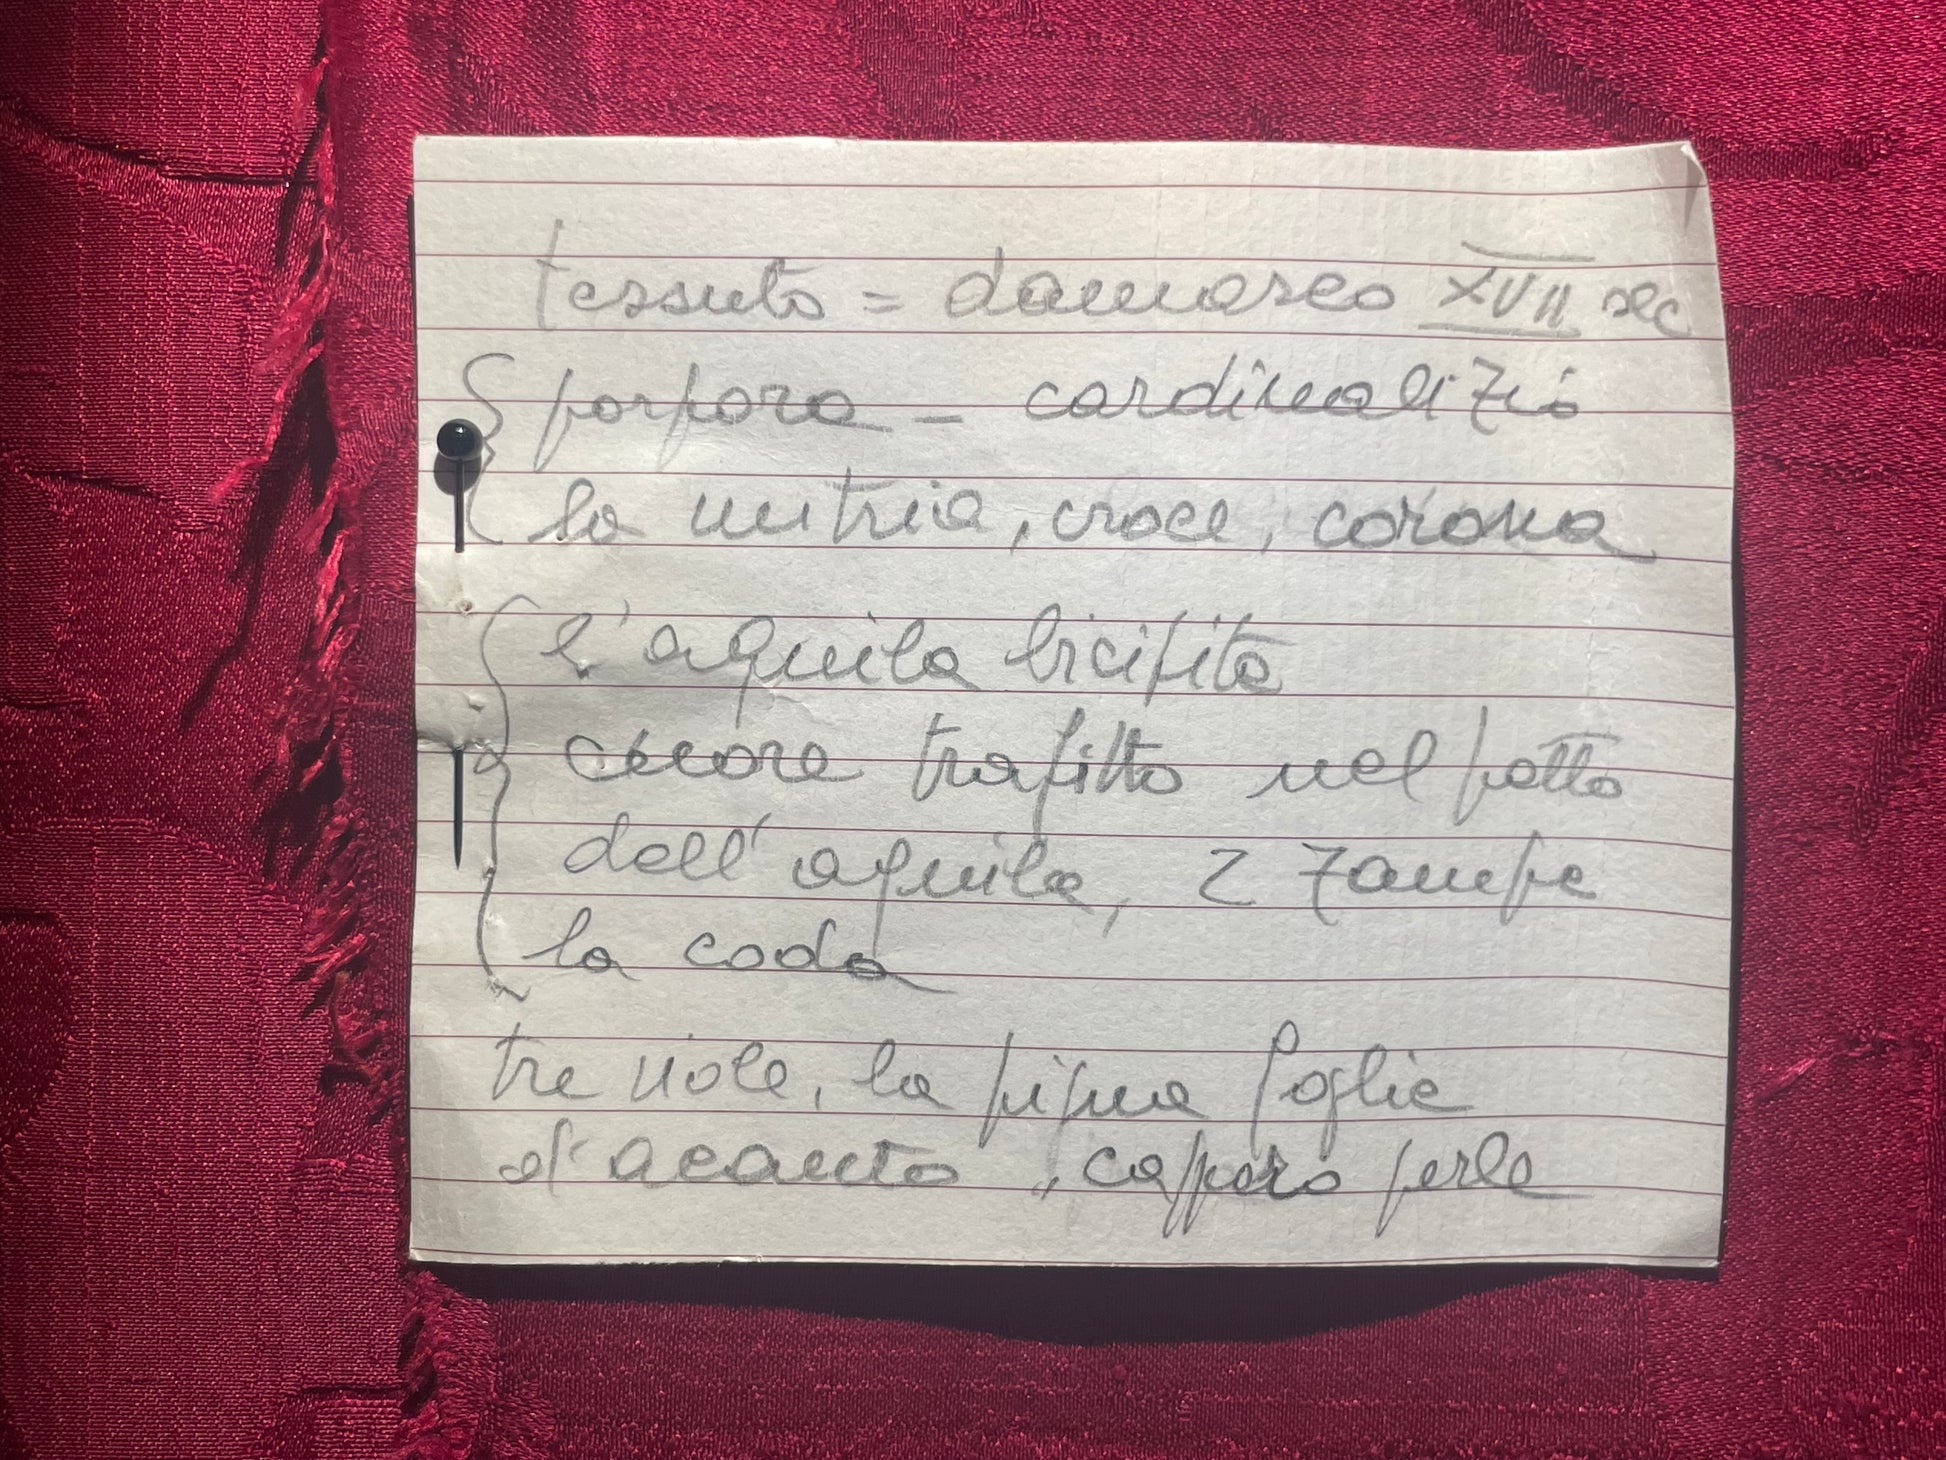 tessuto = damasco XVII sec
porpora - cardinalizio
la mitria, croce, corona
l'aquila bicifita
cuore trafitto nel petto
dell'aquila, 2 zampe
la coda
tre viole, la pigna foglie
d'acanto, perle